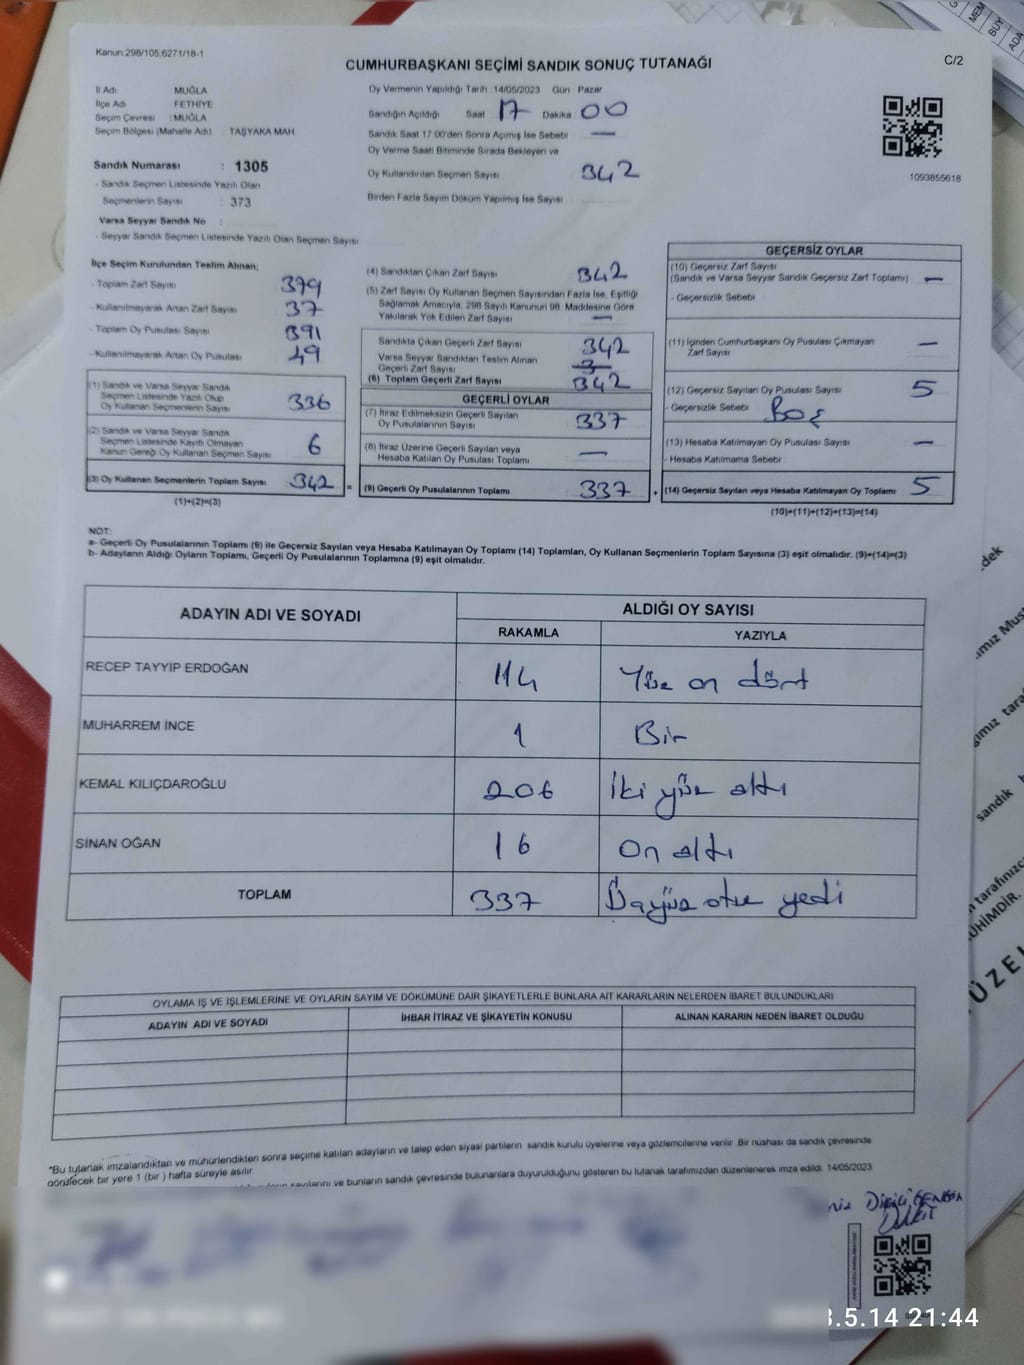 Kanun:298/105,6271/18-1
CUMHURBAŞKANI SEÇİMİ SANDIK SONUÇ TUTANAĞI
C/2
İl Adı MUĞLA
İlçe Adı FETHİYE
Seçim Çevresi : MUĞLA
Seçim Bölgesi (Mahalle Adı) : TAŞYAKA MAH
Sandık Numarası : 1305
- Sandık Seçmen Listesinde Yazılı Olan
Seçmenlerin Sayısı : 373
Varsa Seyyar Sandık No :
- Seyyar Sandık Seçmen Listesinde Yazılı Olan Seçmen Sayısı
Oy Vermenin Yapıldığı Tarih 14/05/2023 Gün Pazar
Sandığın Açıldığı Saat 17 Dakika 00
Sandık Saat 17:00'den Sonra Açılmış İse Sebebi —
Oy Verme Saati Bitiminde Sırada Bekleyen ve
Oy Kullandırılan Seçmen Sayısı 342
Birden Fazla Sayım Döküm Yapılmış İse Sayısı
1093855618
İlçe Seçim Kurulundan Teslim Alınan;
- Toplam Zarf Sayısı 379
- Kullanılmayarak Artan Zarf Sayısı 37
- Toplam Oy Pusulası Sayısı 391
- Kullanılmayarak Artan Oy Pusulası 49
(1) Sandık ve Varsa Seyyar Sandık
Seçmen Listesinde Yazılı Olup
Oy Kullanan Seçmenlerin Sayısı 336
(2) Sandık ve Varsa Seyyar Sandık
Seçmen Listesinde Kayıtlı Olmayan
Kanun Gereği Oy Kullanan Seçmen Sayısı 6
(3) Oy Kullanan Seçmenlerin Toplam Sayısı 342 =
(1)+(2)=(3)
(4) Sandıktan Çıkan Zarf Sayısı 342
(5) Zarf Sayısı Oy Kullanan Seçmen Sayısından Fazla İse, Eşitliği
Sağlamak Amacıyla, 298 Sayılı Kanunun 98. Maddesine Göre
Yakılarak Yok Edilen Zarf Sayısı —
Sandıkta Çıkan Geçerli Zarf Sayısı 342
Varsa Seyyar Sandıktan Teslim Alınan
Geçerli Zarf Sayısı
(6) Toplam Geçerli Zarf Sayısı 342
GEÇERLİ OYLAR
(7) İtiraz Edilmeksizin Geçerli Sayılan
Oy Pusulalarının Sayısı 337
(8) İtiraz Üzerine Geçerli Sayılan veya
Hesaba Katılan Oy Pusulası Toplamı —
(9) Geçerli Oy Pusulalarının Toplamı 337 +
GEÇERSİZ OYLAR
(10) Geçersiz Zarf Sayısı
(Sandık ve Varsa Seyyar Sandık Geçersiz Zarf Toplamı) —
- Geçersizlik Sebebi
(11) İçinden Cumhurbaşkanı Oy Pusulası Çıkmayan
Zarf Sayısı —
(12) Geçersiz Sayılan Oy Pusulası Sayısı 5
- Geçersizlik Sebebi Boş
(13) Hesaba Katılmayan Oy Pusulası Sayısı —
- Hesaba Katılmama Sebebi
(14) Geçersiz Sayılan veya Hesaba Katılmayan Oy Toplamı 5
(10)+(11)+(12)+(13)=(14)
NOT:
a- Geçerli Oy Pusulalarının Toplamı (9) ile Geçersiz Sayılan veya Hesaba Katılmayan Oy Toplamı (14) Toplamları, Oy Kullanan Seçmenlerin Toplam Sayısına (3) eşit olmalıdır. (9)+(14)=(3)
b- Adayların Aldığı Oyların Toplamı, Geçerli Oy Pusulalarının Toplamına (9) eşit olmalıdır.
ADAYIN ADI VE SOYADI ALDIĞI OY SAYISI
RAKAMLA YAZIYLA
RECEP TAYYİP ERDOĞAN 114 Yüz on dört
MUHARREM İNCE 1 Bir
KEMAL KILIÇDAROĞLU 206 İki yüz altı
SİNAN OĞAN 16 On altı
TOPLAM 337 Üçyüz otuz yedi
OYLAMA İŞ VE İŞLEMLERİNE VE OYLARIN SAYIM VE DÖKÜMÜNE DAİR ŞİKAYETLERLE BUNLARA AİT KARARLARIN NELERDEN İBARET BULUNDUKLARI
ADAYIN ADI VE SOYADI İHBAR İTİRAZ VE ŞİKAYETİN KONUSU ALINAN KARARIN NEDEN İBARET OLDUĞU
*Bu tutanak imzalandıktan ve mühürlendikten sonra seçime katılan adayların ve talep eden siyasi partilerin sandık kurulu üyelerine veya gözlemcilerine verilir. Bir nüshası da sandık çevresinde
görülecek bir yere 1 (bir) hafta süreyle asılır.
sayılarını ve bunların sandık çevresinde bulunanlara duyurulduğunu gösteren bu tutanak tarafımızdan düzenlenerek imza edildi. 14/05/2023
.5.14 21:44